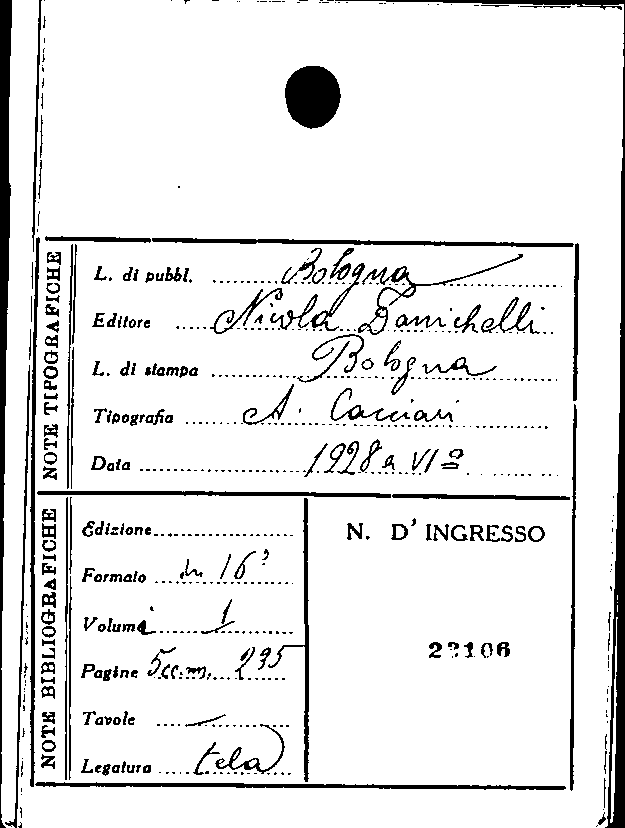 NOTE TIPOGRAFICHE
L. di pubbl. Bologna
Editore Nicola Zanichelli
L. di stampa Bologna
Tipografia A. Cacciari
Data 1928 a VIº
NOTE BIBLIOGRAFICHE
Edizione
Formato in 16º
Volume 1
Pagine 5 cc. nn. 235
Tavole
Legatura tela
N. D' INGRESSO